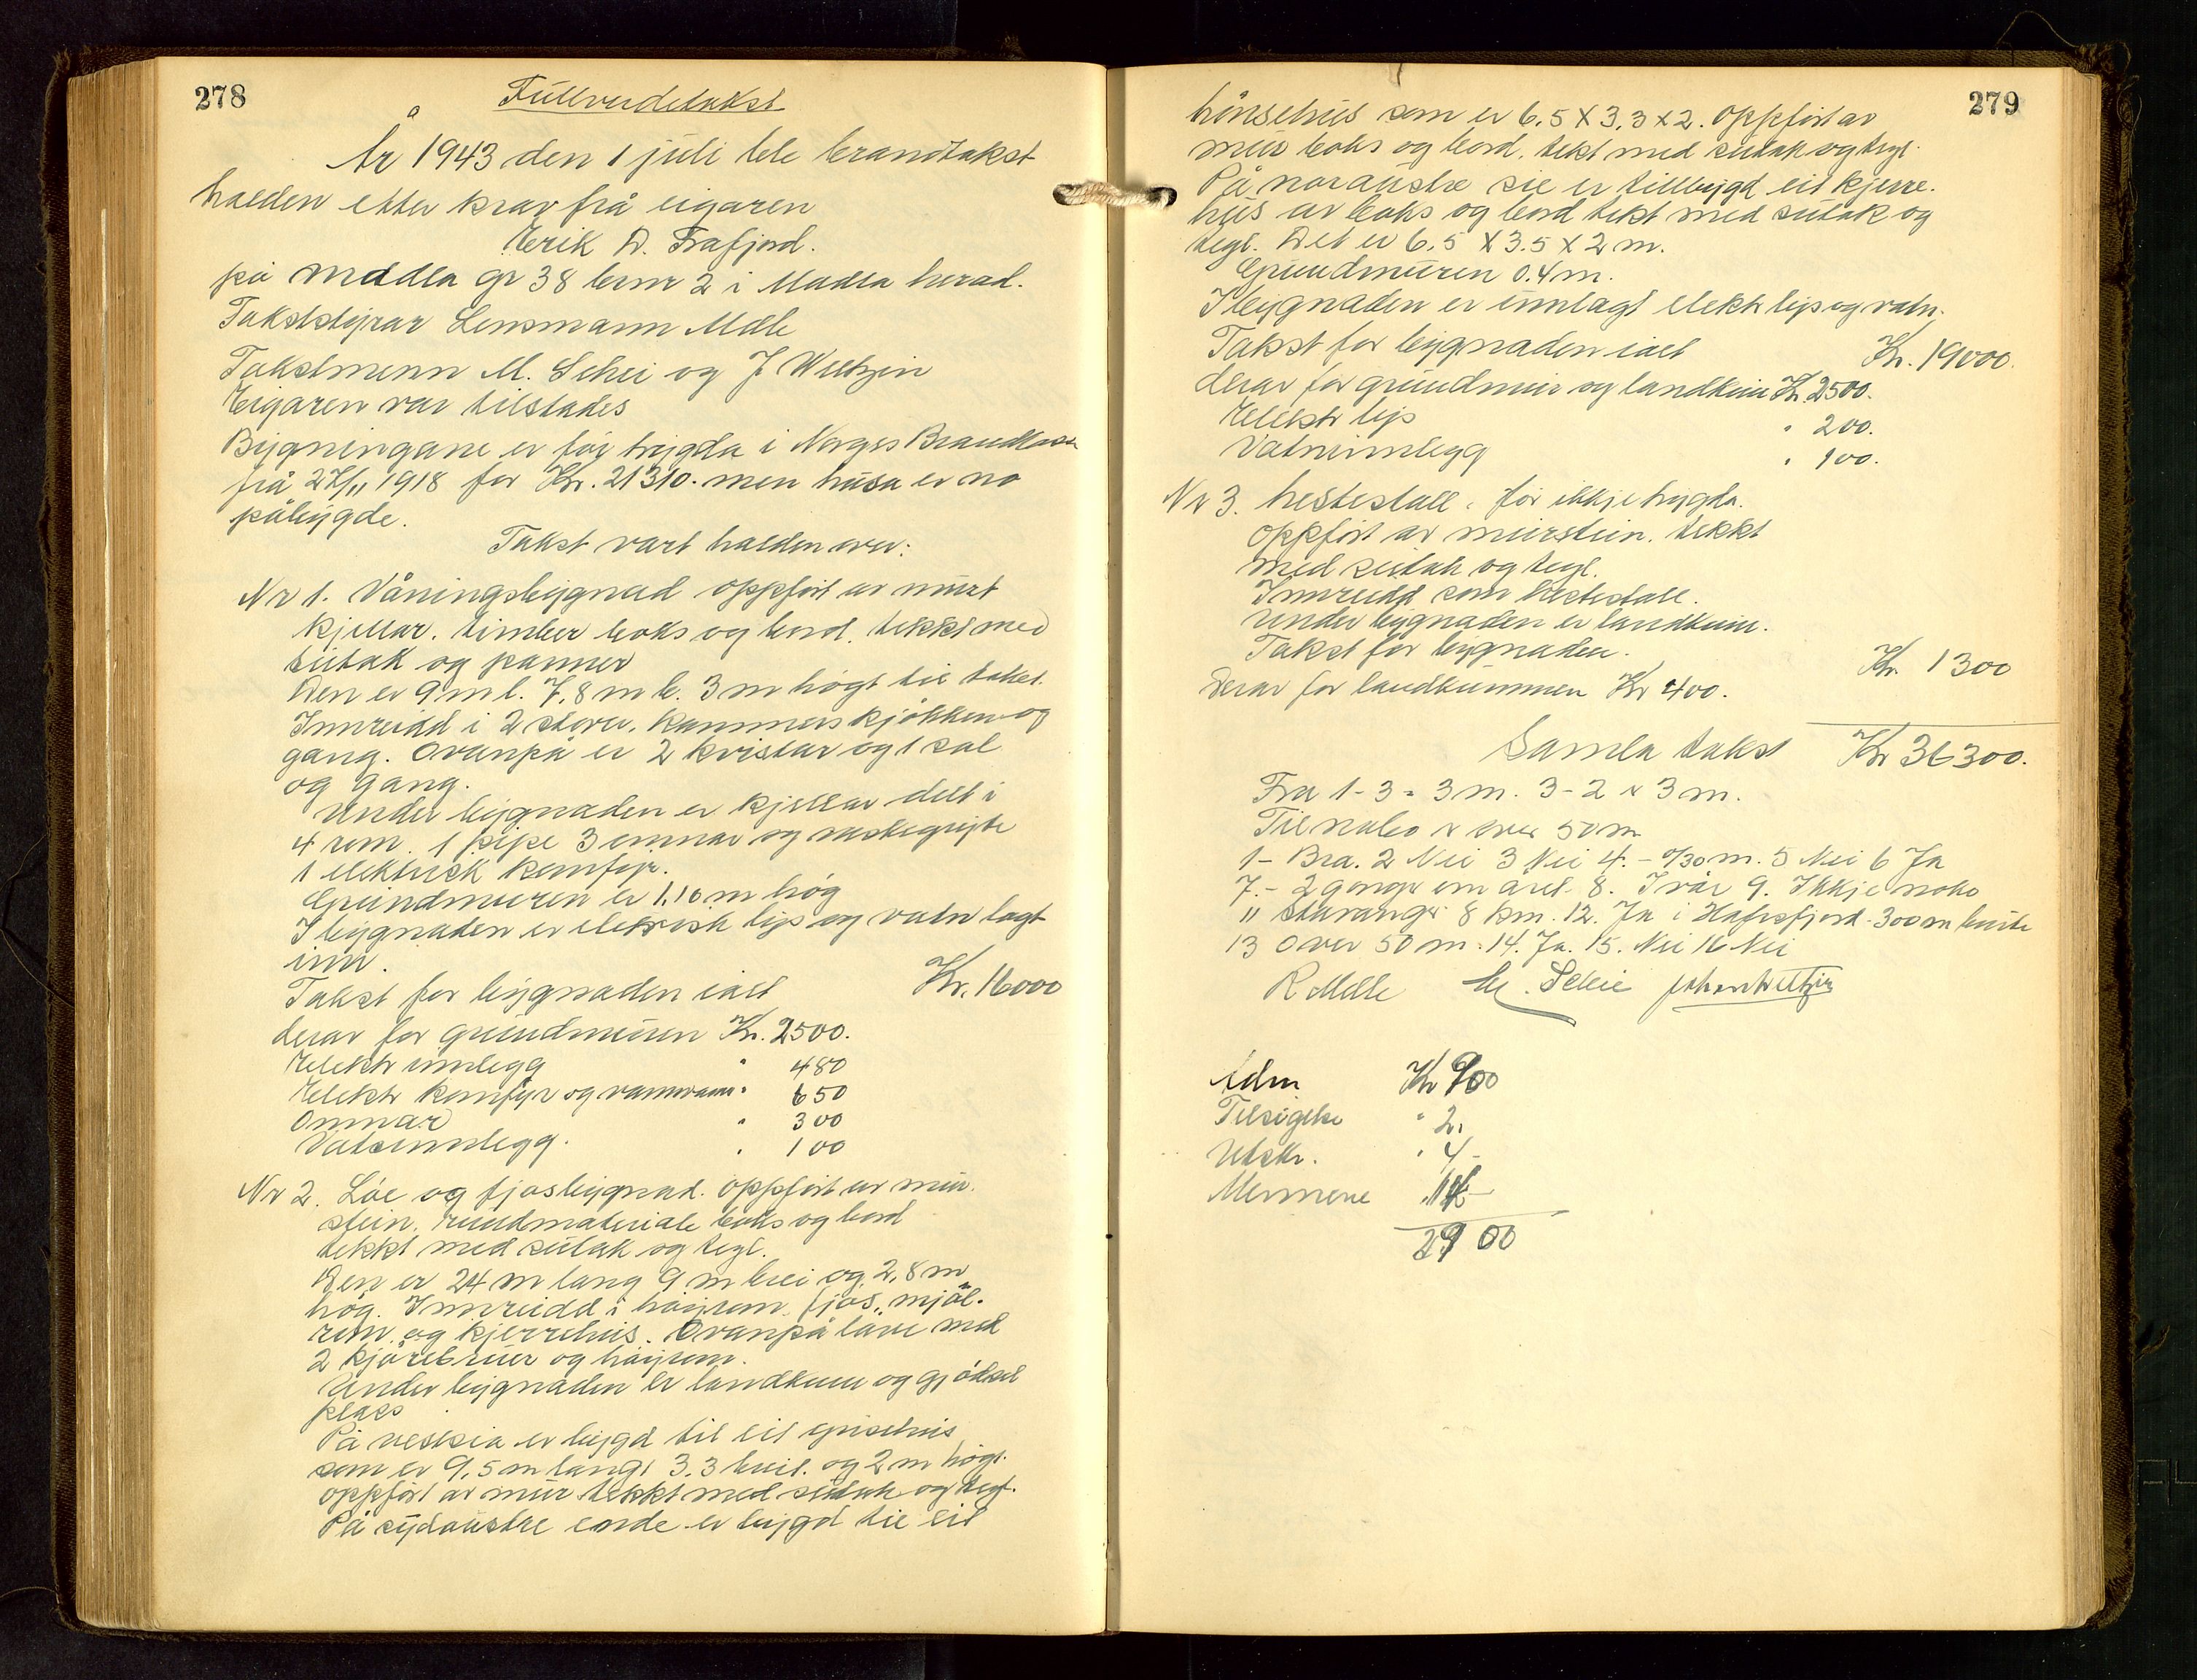 278
Fullverdetakst
År 1943 den 1 juli ble brandtakst
halden etter krav frå eigaren
Erik D. Frafjord.
på Madla gr 38 brnr 2 i Madla herad.
Takststyrar Lensmann Melle
Takstmenn M. Schei og J. Weltzin
Eigaren var tilstades
Bygningane er før trygda i Norges Brandkasse
frå 27/11 1918 for Kr. 21310. men husa er no
påbygde.
Takst vart halden over:
Nr 1. Våningsbygnad oppført av murt
kjellar. timber boks og bord. tekkt med
sutak og panner
Den er 9 m l. 7,8 m b. 3 m høgt til taket.
Innreidd i 2 stover. kammers kjøkken og
gang. Ovanpå er 2 kvistar og 1 sal
og gang.
Under bygnaden er kjellar delt i
4 rom. 1 pipe 3 omnar og vaskegryte
1 elektrisk komfyr.
Grundmuren er 1,10 m høg
I bygnaden er elektrisk lys og vatn lagt
inn.
Takst for bygnaden ialt Kr. 16000
derav for grundmuren Kr. 2500.
Elektr innlegg " 480
Elektr komfyr og " 650
Omnar " 300
Vatsinnlegg. " 100
Nr 2. Løe og fjosbygnad. oppført av mur-
stein. rundmateriale boks og bord
tekkt med sutak og tegl.
Den er 24 m lang 9 m brei og 2,8 m
høg. Innreidd i høyrom fjos, mjøl-
rom og kjerrehus. Ovanpå løve med
2 kjørebruer og høyrom.
Under bygnaden er landkum og gjødsel
plass
På vestsia er bygd til eit grisehus
som er 9,5 m langt 3.3 breit. og 2 m høgt.
oppført av mur tekkt med sutak og tegl.
På sydaustre ende er bygd til eit
279
hønsehus som er 6,5 X 3,3 x 2. oppført av
mur boks og bord. tekt med sutak og tegl.
På noraustre sie er tillbygd eit kjerre-
hus av boks og bord tekt med sutak og
tegl. Det er 6,5 X 3.5 X 2 m.
Grundmuren 0.4 m.
I bygnaden er innlagt elektr lys og vatn.
Takst for bygnaden ialt Kr. 19000.
derav for grundmur og landkum Kr. 2500.
Elektr lys " 200.
Vatninnlegg " 100.
Nr 3. hestestall. før ikkje trygda.
oppført av murstein. tekkt
med sutak og tegl.
Innreidd som hestestall.
Under bygnaden er landkum.
Takst for bygnaden. Kr 1300
Derav for landkummen Kr 400.
Samla takst Kr 36300.
Fra 1-3 = 3 m. 3-2 = 3 m.
Til nabo er over 50 m
1- Bra. 2 Nei 3 Nei 4. - 0/30 m. 5 Nei 6 Ja
7.- 2 gonger om året 8. I vår 9. Ikkje noko
11 Stavanger 8 km. 12. Ja i Hafrsfjord 300 m borte
13 Over 50 m. 14. Ja. 15. Nei 16 Nei
R Melle M. Schei Johan Weltzin
Adm Kr 900
Tilsigelse " 2.
Utskr. " 4-
Mennene
2900